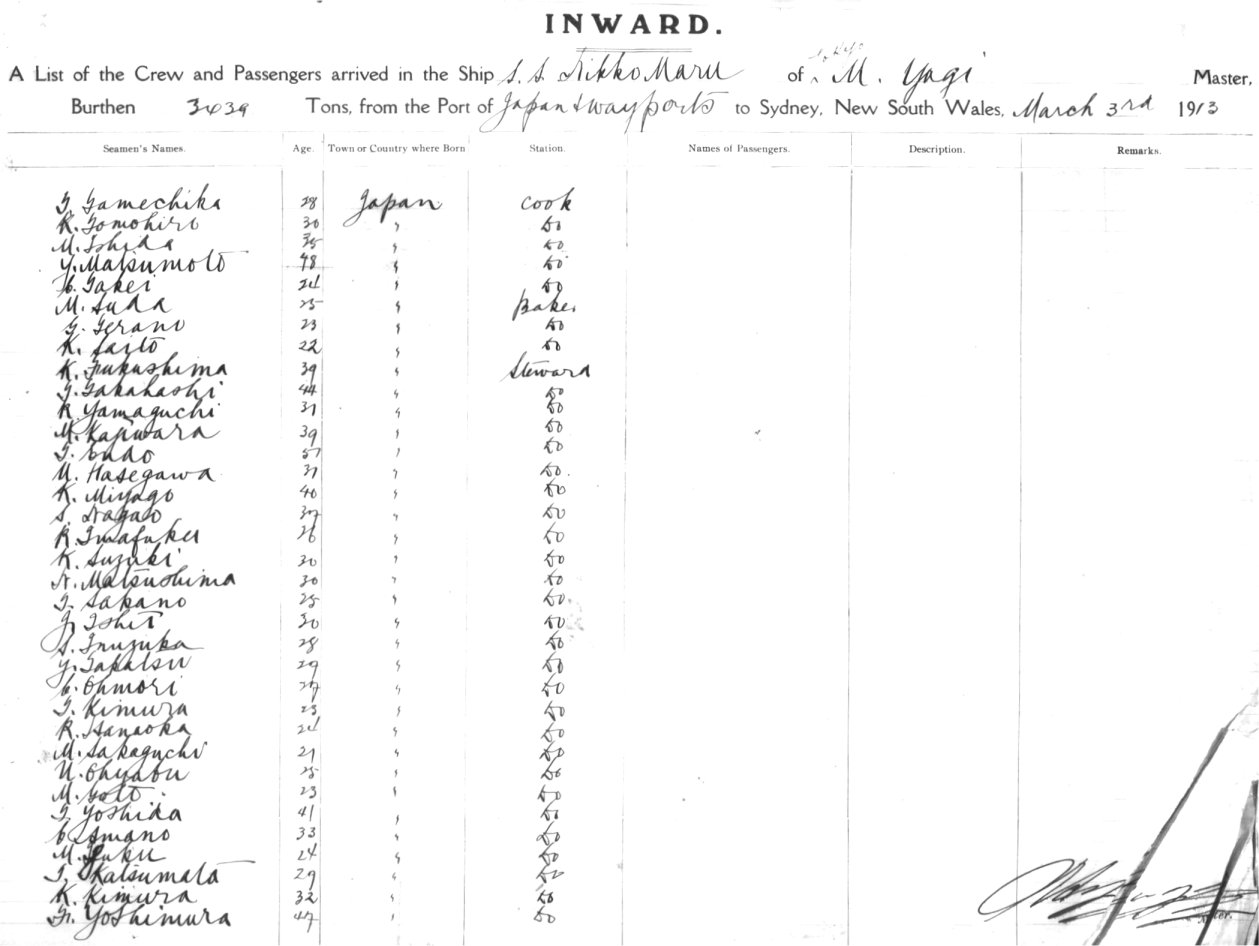 INWARD.
A List of the Crew and Passengers arrived in the Ship S. S. Nikko Maru of Tokyo M. Yagi Master,
Burthen 3439 Tons, from the Port of Japan & wayports to Sydney, New South Wales, March 3rd 1913
Seamen's Names. Age. Town or Country where Born Station. Names of Passengers. Description. Remarks.
28 Japan Cook
K. Tomohiro 30 " Do
M. Ishida 35 " Do
Y. Matsumoto 48 " Do
Takei 24 " Do
M. Suda 25 " Baker
Terano 23 " Do
K. Saito 22 " Do
K. Fukushima 39 " Steward
T. Takahashi 44 " Do
R. Yamaguchi 31 " Do
M. Kajiwara 39 " Do
T. Endo " Do
M. Hasegawa 31 " Do.
K. Miyago 40 " Do
S. Nagao " Do
R. Imafuku 26 " Do
K. Suzuki 30 " Do
N. Matsushima 30 " Do
T. Sakano 25 " Do.
Ishii 30 " Do
S. Inuzuka 28 " Do
Y. Takatsu 29 " Do
Ohmori 27 " Do
T. Kimura 23 " Do
R. Hanaoka 24 " Do
M. Sakaguchi 21 " Do
Ohyabu 25 " Do
M. Goto 23 " Do
T. Yoshida 41 " Do
Amano 33 " Do
M. 24 " Do
T. Katsumata 29 " Do
K. Kimura 32 " Do
Yoshimura 47 " Do